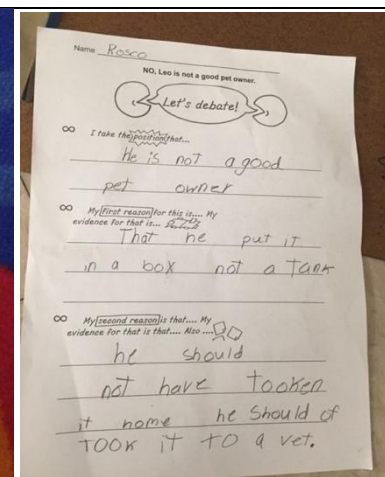 Name Rosco
NO, Leo is not a good pet owner.
Let's debate!
∞ I take the position that...
He is not a good
pet owner
∞ My first reason for this is.... My
evidence for that is...
That he put it
in a box not a Tank
∞ My second reason is that.... My
evidence for that is that.... Also ....
he should
not have tooken
it home he Should of
TOOK iT TO a vet.